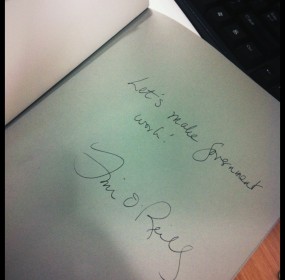 Let's make government
work!
Tim O'Reilly